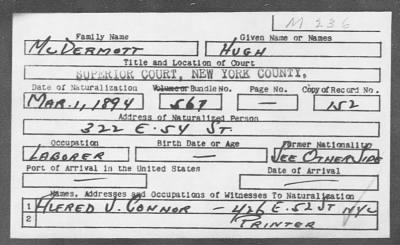 M 236
Family Name Given Name or Names
McDERMOTT HUGH
Title and Location of Court
SUPERIOR COURT, NEW YORK COUNTY,
Date of Naturalization Volume or Bundle No. Page No. Copy of Record No.
MAR. 11, 1894 567 — 152
Address of Naturalized Person
322 E. 54 ST.
Occupation Birth Date or Age Former Nationality
LABORER — SEE OTHER SIDE
Port of Arrival in the United States Date of Arrival
— —
Names, Addresses and Occupations of Witnesses To Naturalization
1 ALFRED J. CONNOR — 426 E. 52 ST NYC
2 PRINTER